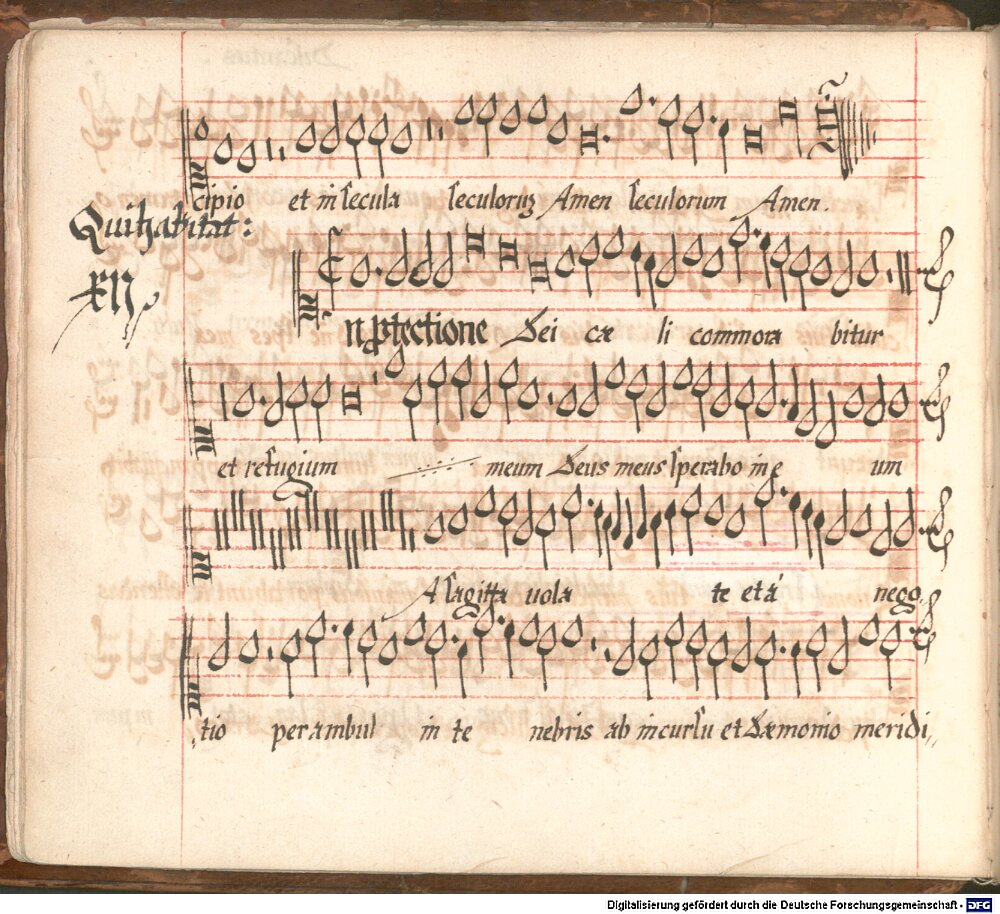 cipio et in secula seculoruȝ Amen seculorum Amen.
Qui habitat:
XII
n ꝓtectione Dei cæ li commora bitur
et refugium meum Deus meus sperabo in e um
A sagitta uola te et á nego,,
,,tio perambul in te nebris ab incursu et dæmonio meridi,,
Digitalisierung gefördert durch die Deutsche Forschungsgemeinschaft - DFG